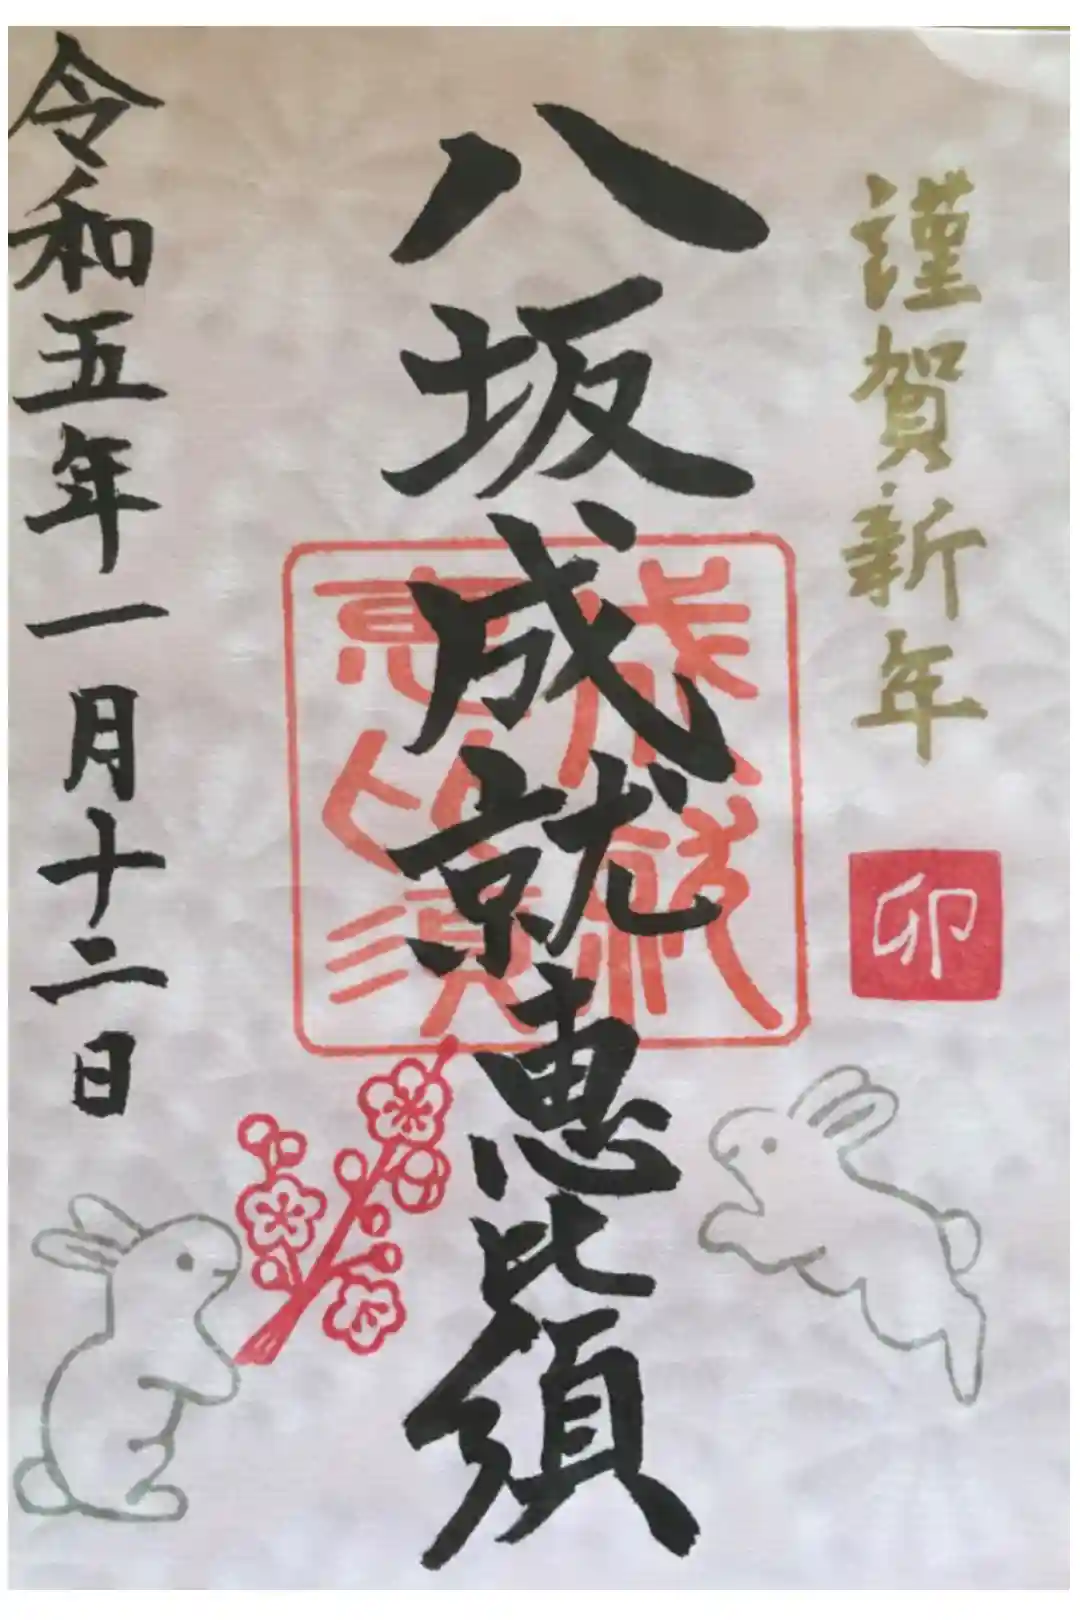 謹賀新年
卯
八坂成就恵比須
成就
恵比須
令和五年一月十二日